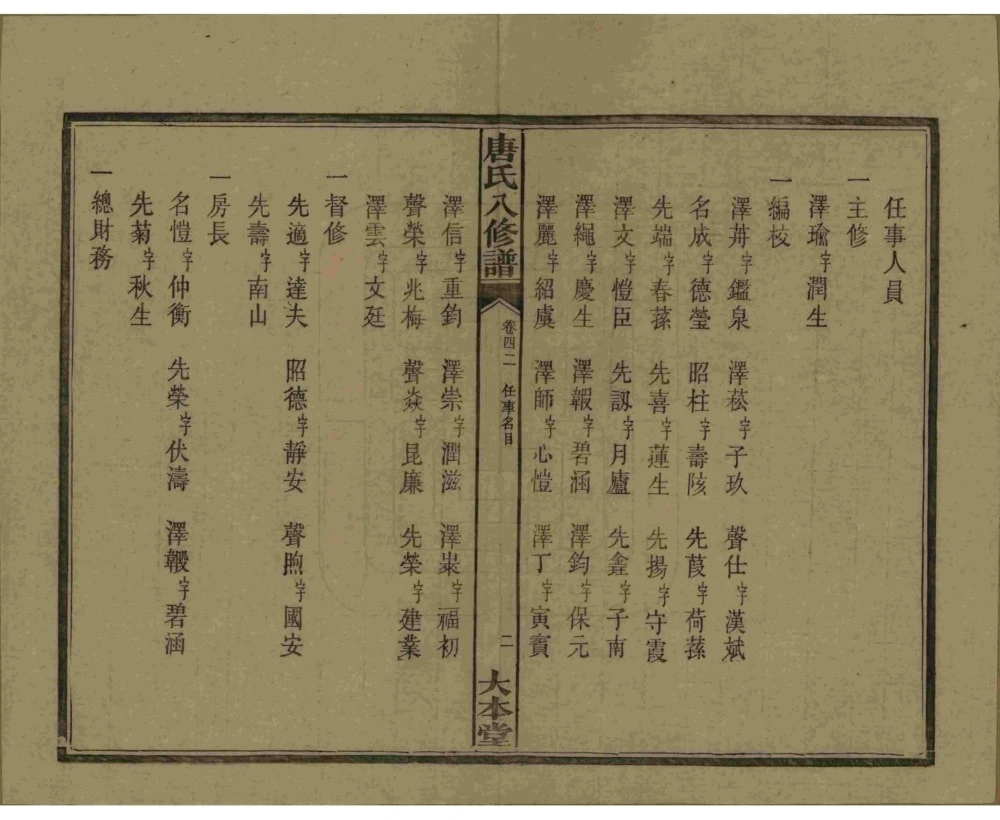 任事人員
一主修
澤瑜字潤生
一編校
澤苒字鑑泉　澤菘字子玖　聲仕字漢斌
名成字德瑩　昭柱字壽陔　先葭字荷蓀
先端字春蓀　先喜字蓮生　先揚字守霞
澤文字愷臣　先訒字月廬　先鑫字子南
澤繩字慶生　澤報字碧涵　澤鈞字保元
澤麗字紹虞　澤師字心愷　澤丁字寅賓
唐氏八修譜
卷四二　任事名目　二
大本堂
澤信字重鈞　澤崇字潤滋　澤字福初
聲榮字兆梅　聲焱字昆廉　先榮字建業
澤雲字文廷
一督修
先適字達夫　昭德字靜安　聲煦字國安
先壽字南山
一房長
名愷字仲衡　先榮字伏濤　澤字碧涵
先菊字秋生
一總財務